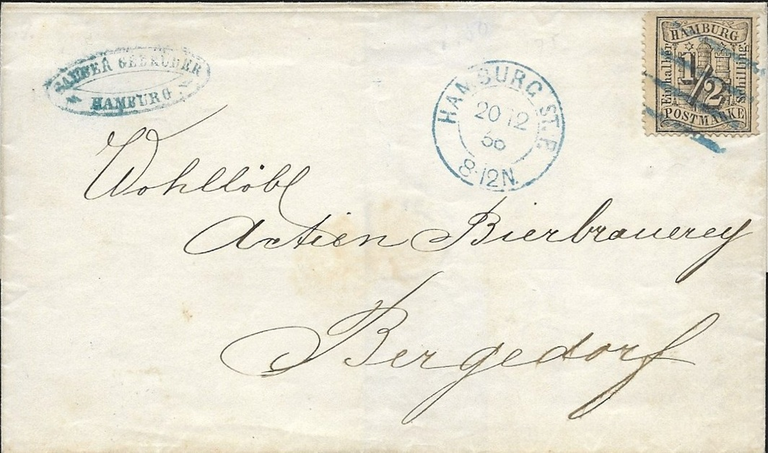 GEBRÜDER
HAMBURG
HAMBURG ST.P.
20 12
8-12N.
HAMBURG
Einhalber
1/2
Schilling
POSTMARKE
Wohllöbl
Actien Bierbrauerey
Bergedorf